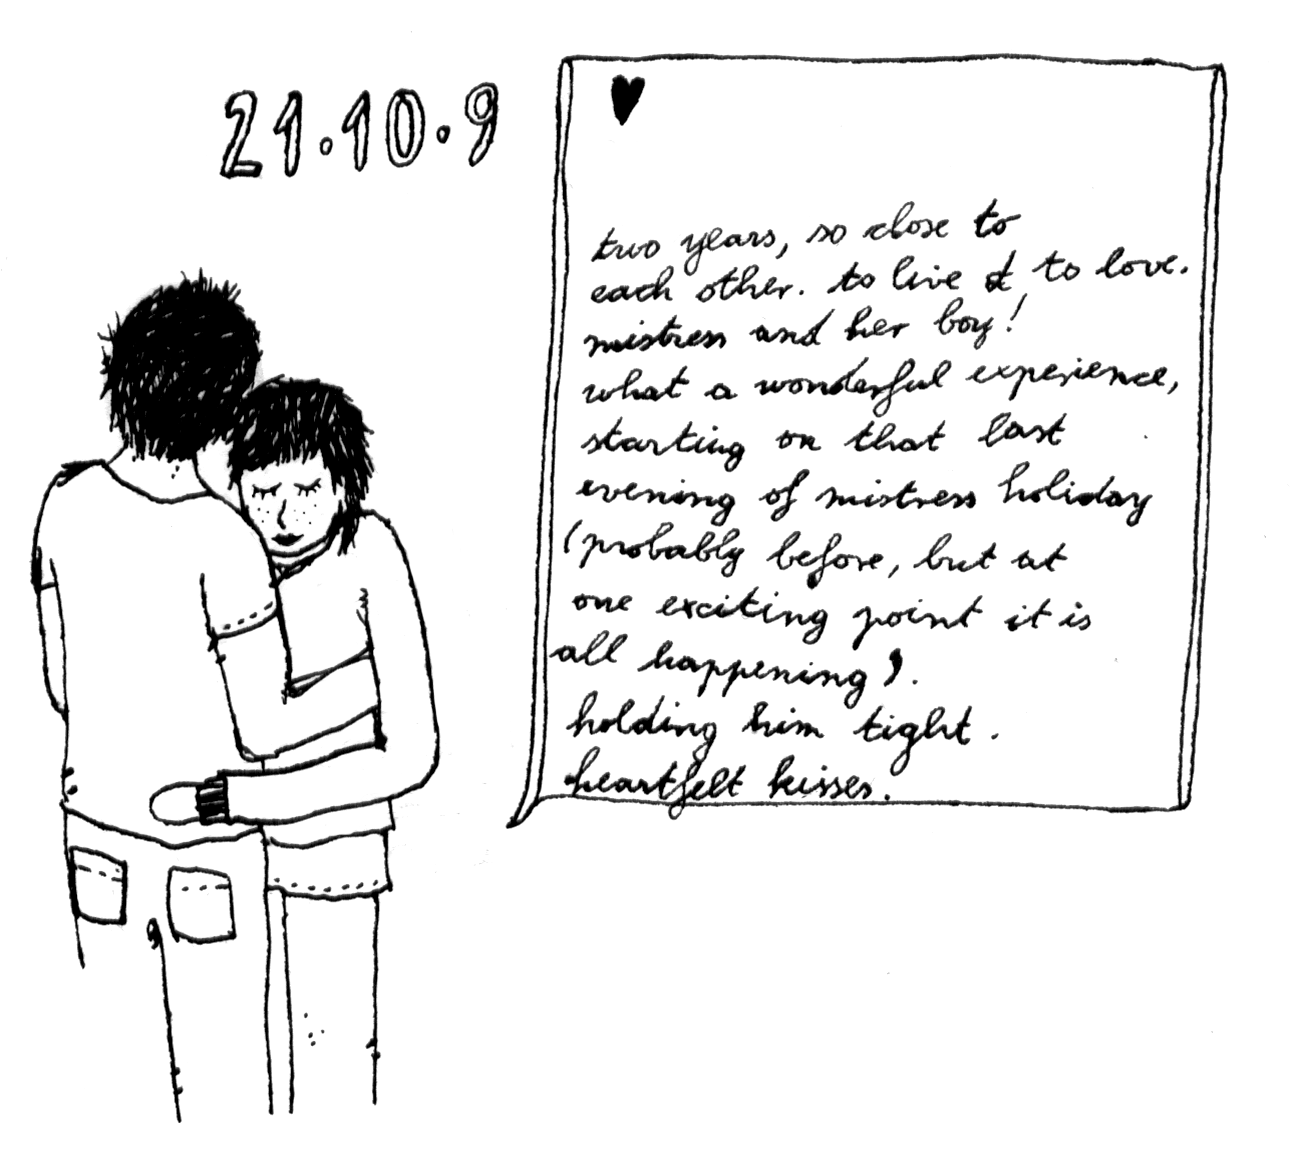 21.10.9
♥
two years, so close to
each other. to live & to love.
mistress and her boy!
what a wonderful experience,
starting on that last
evening of mistress holiday
(probably before, but at
one exciting point it is
all happening).
holding him tight.
heartfelt kisses.